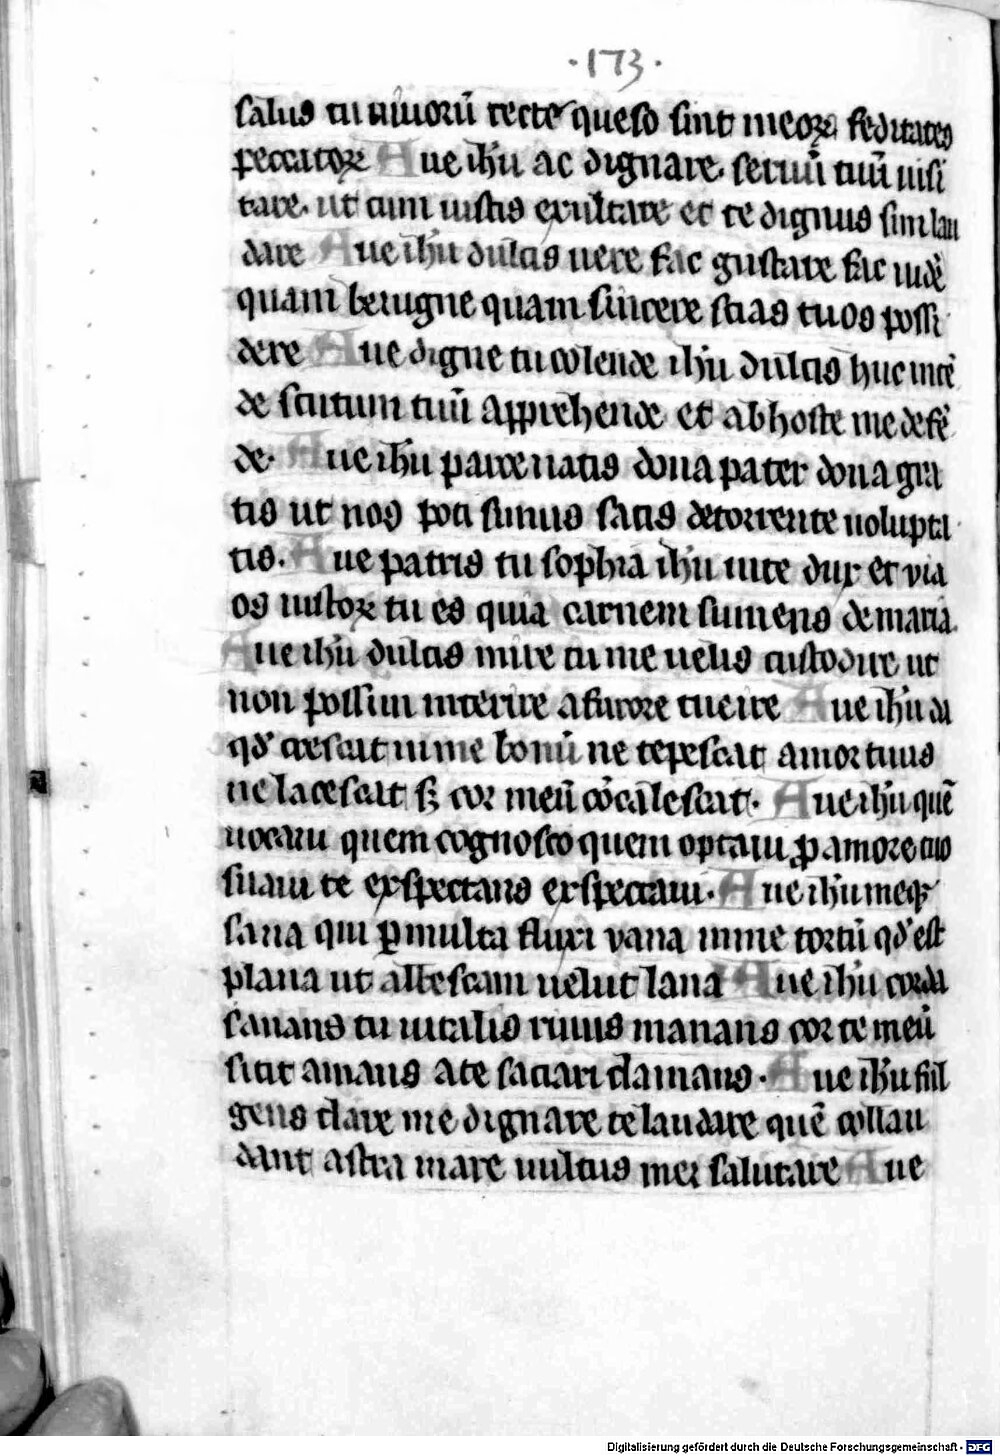 ·173·
salus tu uiuorū recte queso sint meoꝝ feditates
peccatoꝝ Aue ihū ac dignare seruū tuū uisi
tare ut cum iustis exultare et te dignus sim lau
dare Aue ihū dulcis uere fac gustare fac uidē
quam benigne quam sincere scias tuos possi
dere Aue digne tu colende ihū dulcis huc intē
de scutum tuū apprehende et ab hoste me defē
de. Aue ihū parce natis dona pater dona gra
tis ut nos poti simus satis de torrente uolupta
tis. Aue patris tu sophia ihū uite dux et via
os iustoꝝ tu es quia carnem sumens de maria.
Aue ihū dulcis mire tu me uelis custodire ut
non possim interire a furore tue ire Aue ihū da
qd' crescat in me bonū ne tepescat amor tuus
ne lacescat sꝫ cor meū cōcalescat. Aue ihū quē
uocaui quem cognosco quem optaui ꝓ amore tuo
suaui te exspectans exspectaui. Aue ihū meq3
sana qui ꝑ multa fluxi vana in me tortū qd' est
plana ut albescam uelut lana Aue ihū corda
sanans tu uitalis riuus manans cor te meū
sitit amans a te saciari clamans. Aue ihū ful
gens clare me dignare te laudare quē collau
dant astra mare uultus mei salutare Aue
Digitalisierung gefördert durch die Deutsche Forschungsgemeinschaft - DFG